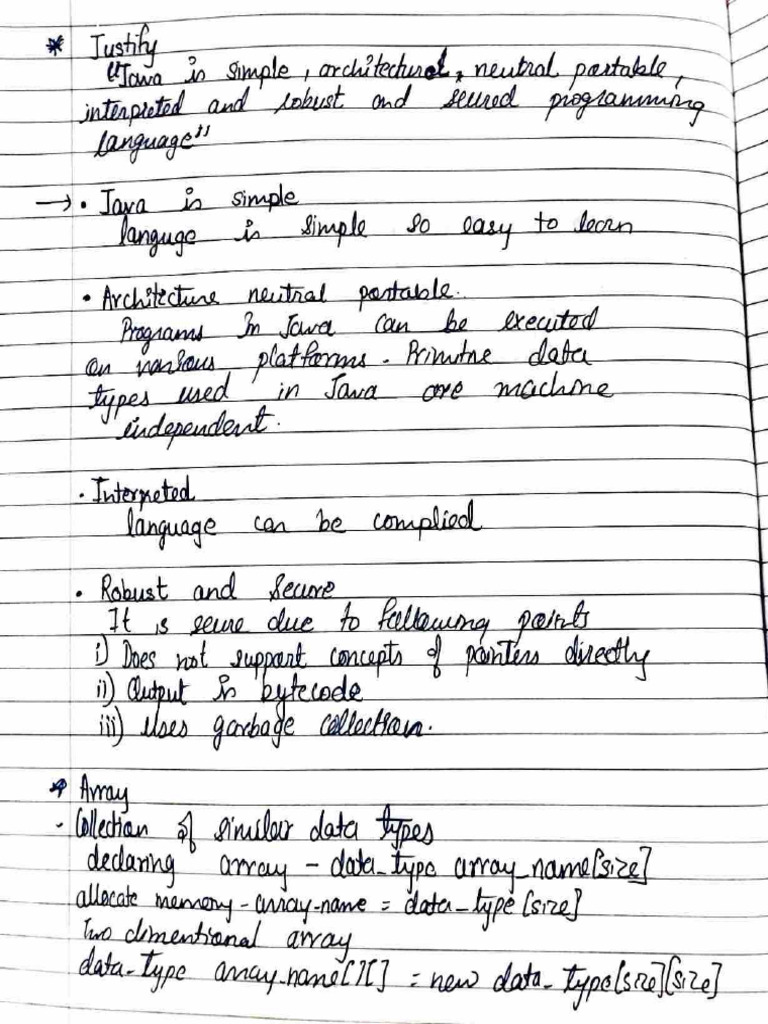 * Justify
"Java is simple, architectural, neutral portable,
interpreted and robust and secured programming
language"
→ • Java is simple
languge is simple so easy to learn
• Architecture neutral portable.
Programs In Java can be executed
on various platforms. Primitve data
types used in Java are machine
independent.
• Interpreted
language can be complied
• Robust and Secure
It is secure due to following points
i) Does not support concepts of pointers directly
ii) Output in bytecode
iii) Uses garbage collection.
* Array
- Collection of similar data types
declaring array - data_type array_name[size]
allocate memory - array-name = data-type [size]
Two dimentional array
data-type array-name[][] = new data-type[size][size]